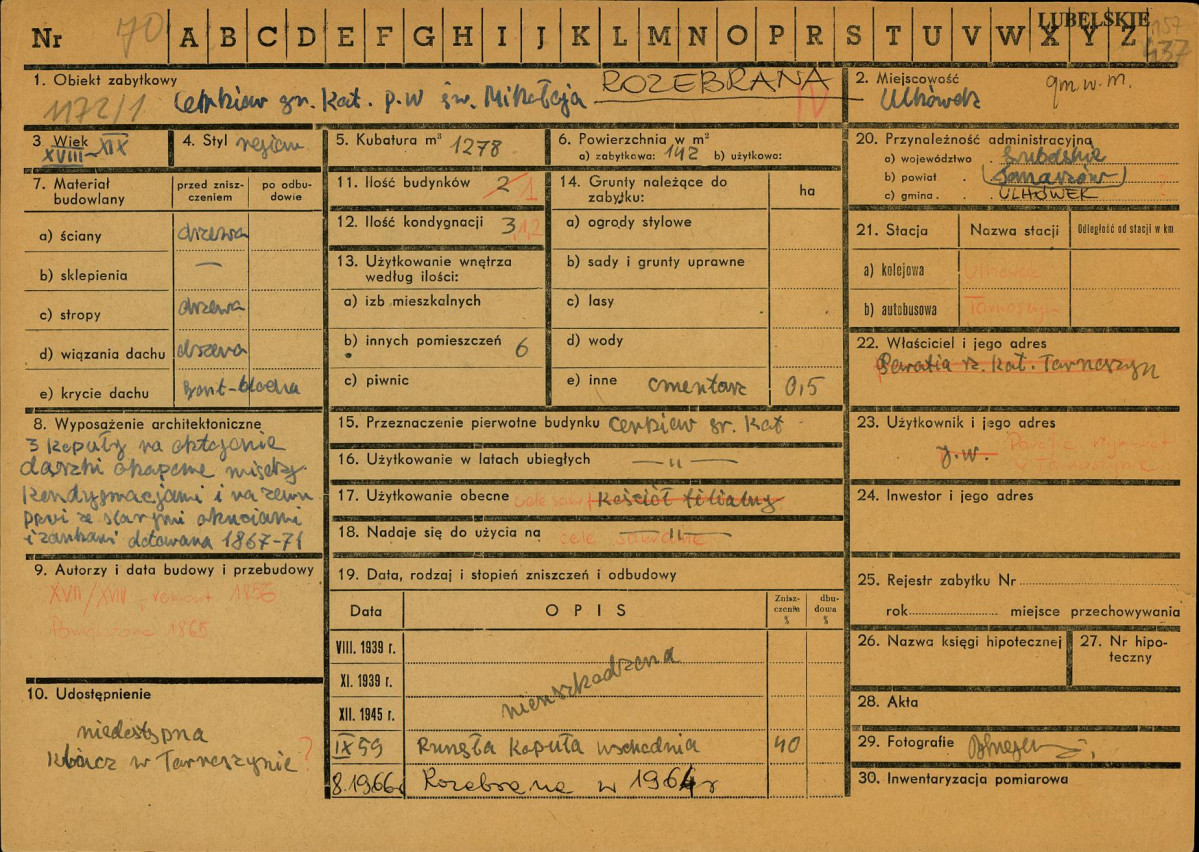 Nr 70 A B C D E F G H I J K L M N O P R S T U V W X Y Z LUBELSKIE 157
437
1. Obiekt zabytkowy
1172/1 Cerkiew gr. Kat. p.w św. Mikołaja ROZEBRANA IV
2. Miejscowość gm.w.m.
Ulhówek
3 Wiek
XVIII-XIX
4. Styl region
5. Kubatura m³ 1278
6. Powierzchnia w m²
a) zabytkowa: 142 b) użytkowa:
20. Przynależność administracyjna
a) województwo . Lubelskie
b) powiat . (Tomaszów)
c) gmina . . ULHÓWEK ?
7. Materiał budowlany
przed znisz-
czeniem
po odbu-
dowie
a) ściany drzewo
b) sklepienia —
c) stropy drzewo
d) wiązania dachu drzewo
e) krycie dachu gont-blacha
8. Wyposażenie architektoniczne
3 kopuły na oktogonie
daszki okapowe między
kondygnacjami i na zewn
i zamkami dotowana 1867-71
9. Autorzy i data budowy i przebudowy
XVII/XVIII - remont 1856
1865
10. Udostępnienie
niedostępna
Klucz w Tarnoszynie ?
11. Ilość budynków 2 1
12. Ilość kondygnacji 3 1,2
13. Użytkowanie wnętrza
według ilości:
a) izb mieszkalnych
b) innych pomieszczeń 6
c) piwnic
14. Grunty należące do
zabytku:
ha
a) ogrody stylowe
b) sady i grunty uprawne
c) lasy
d) wody
e) inne cmentarz 0,5
15. Przeznaczenie pierwotne budynku Cerkiew gr. Kat
16. Użytkowanie w latach ubiegłych — " —
17. Użytkowanie obecne Kościół filialny
18. Nadaje się do użycia na — " — cele sakralne
19. Data, rodzaj i stopień zniszczeń i odbudowy
Data
OPIS
Znisz-
czenia
%
dbu-
dowa
%
VIII. 1939 r.
XI. 1939 r.
XII. 1945 r.
nieuszkodzona
IX 59 Runęła kopuła wschodnia 40
8.1966 Rozebrana w 1964 r
21. Stacja
Nazwa stacji
Odległość od stacji w km
a) kolejowa Ulhówek
b) autobusowa Tarnoszyn
22. Właściciel i jego adres
Parafia rz. Kat. Tarnoszyn
23. Użytkownik i jego adres
j.w.
24. Inwestor i jego adres
25. Rejestr zabytku Nr
rok miejsce przechowywania
26. Nazwa księgi hipotecznej
27. Nr hipo-
teczny
28. Akta
29. Fotografie
30. Inwentaryzacja pomiarowa